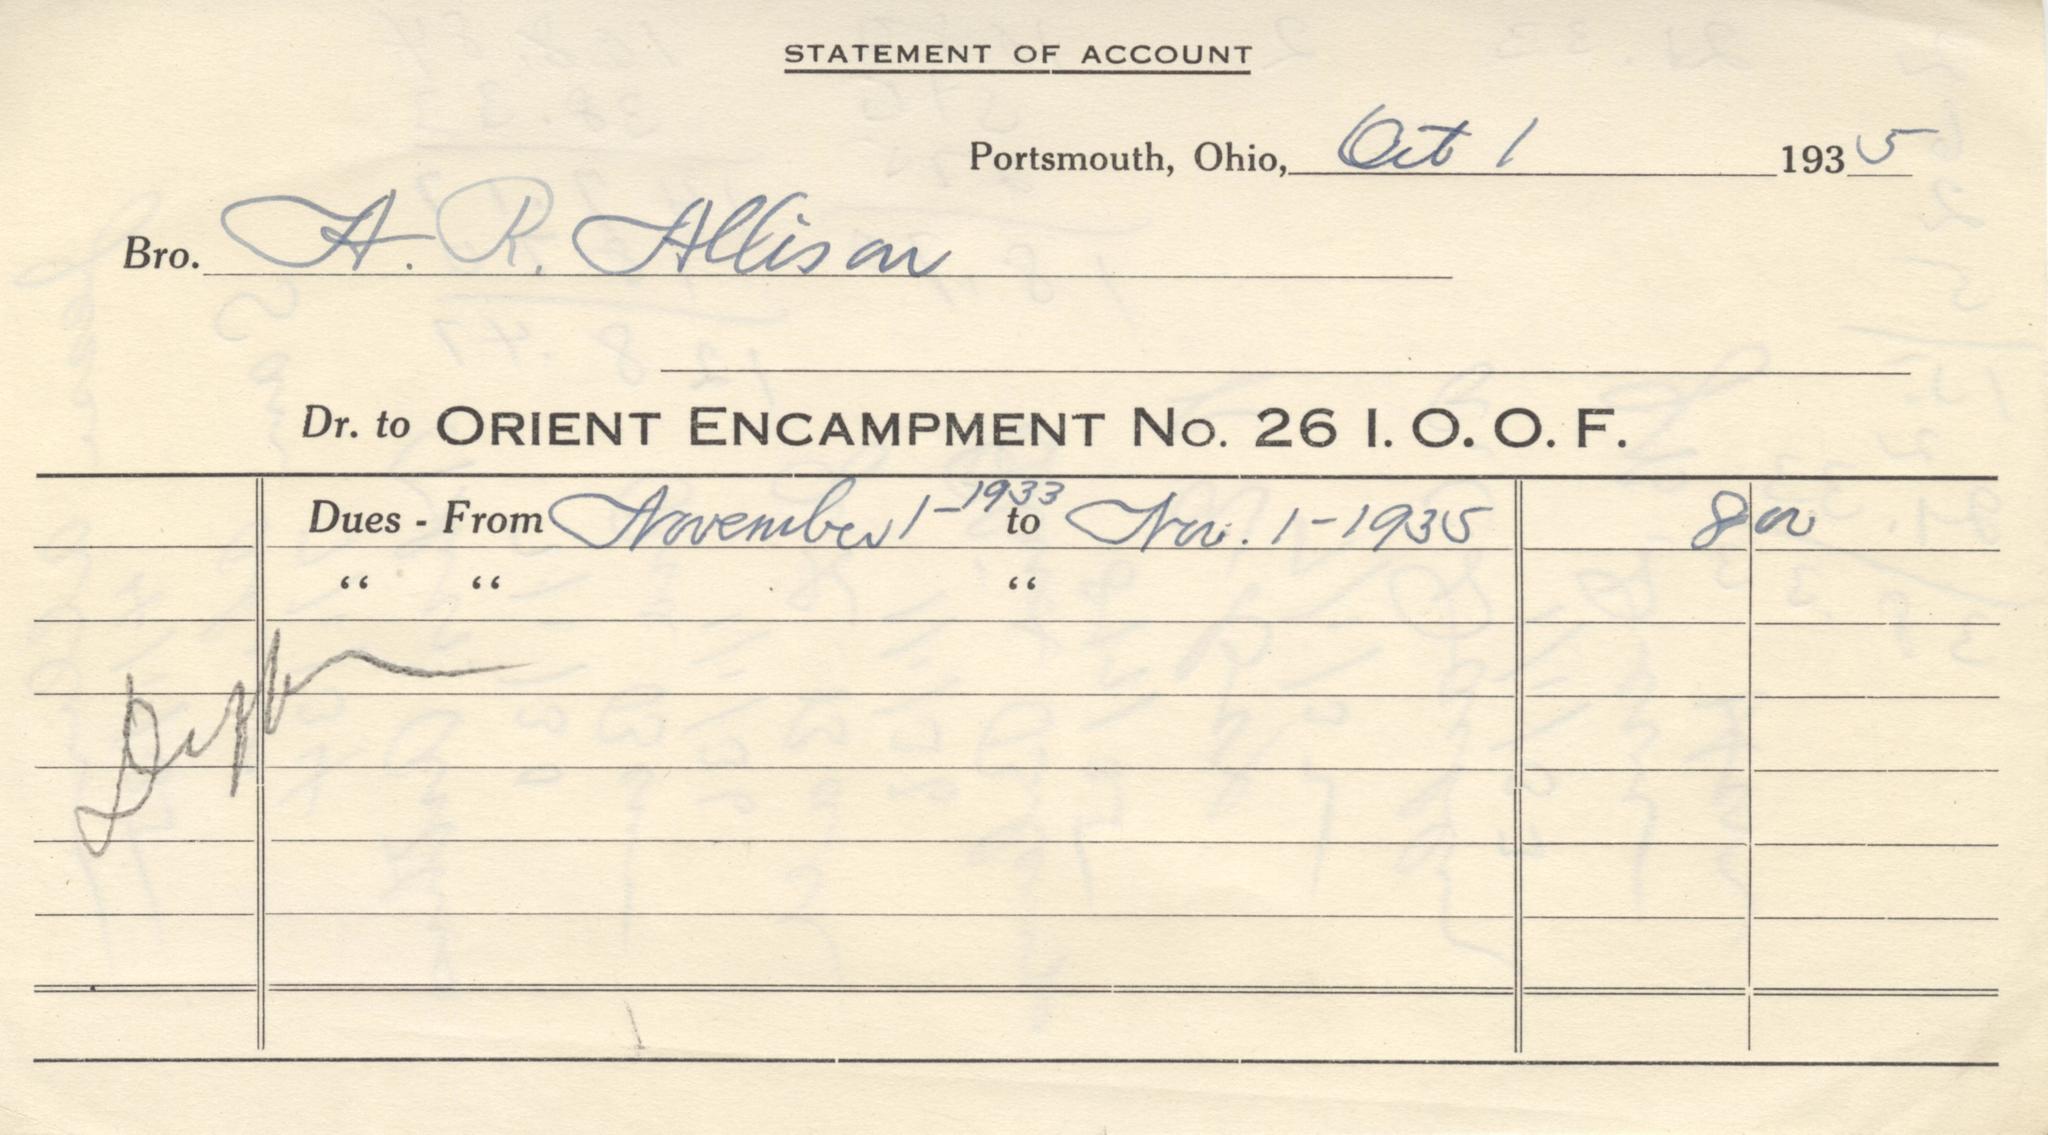 STATEMENT OF ACCOUNT
Portsmouth, Ohio, Oct 1 1935
Bro. A. R. Allison
Dr. to ORIENT ENCAMPMENT No. 26 I. O. O. F.
Dues - From November 1-1933 to Nov. 1-1935 8 00
“ “ “